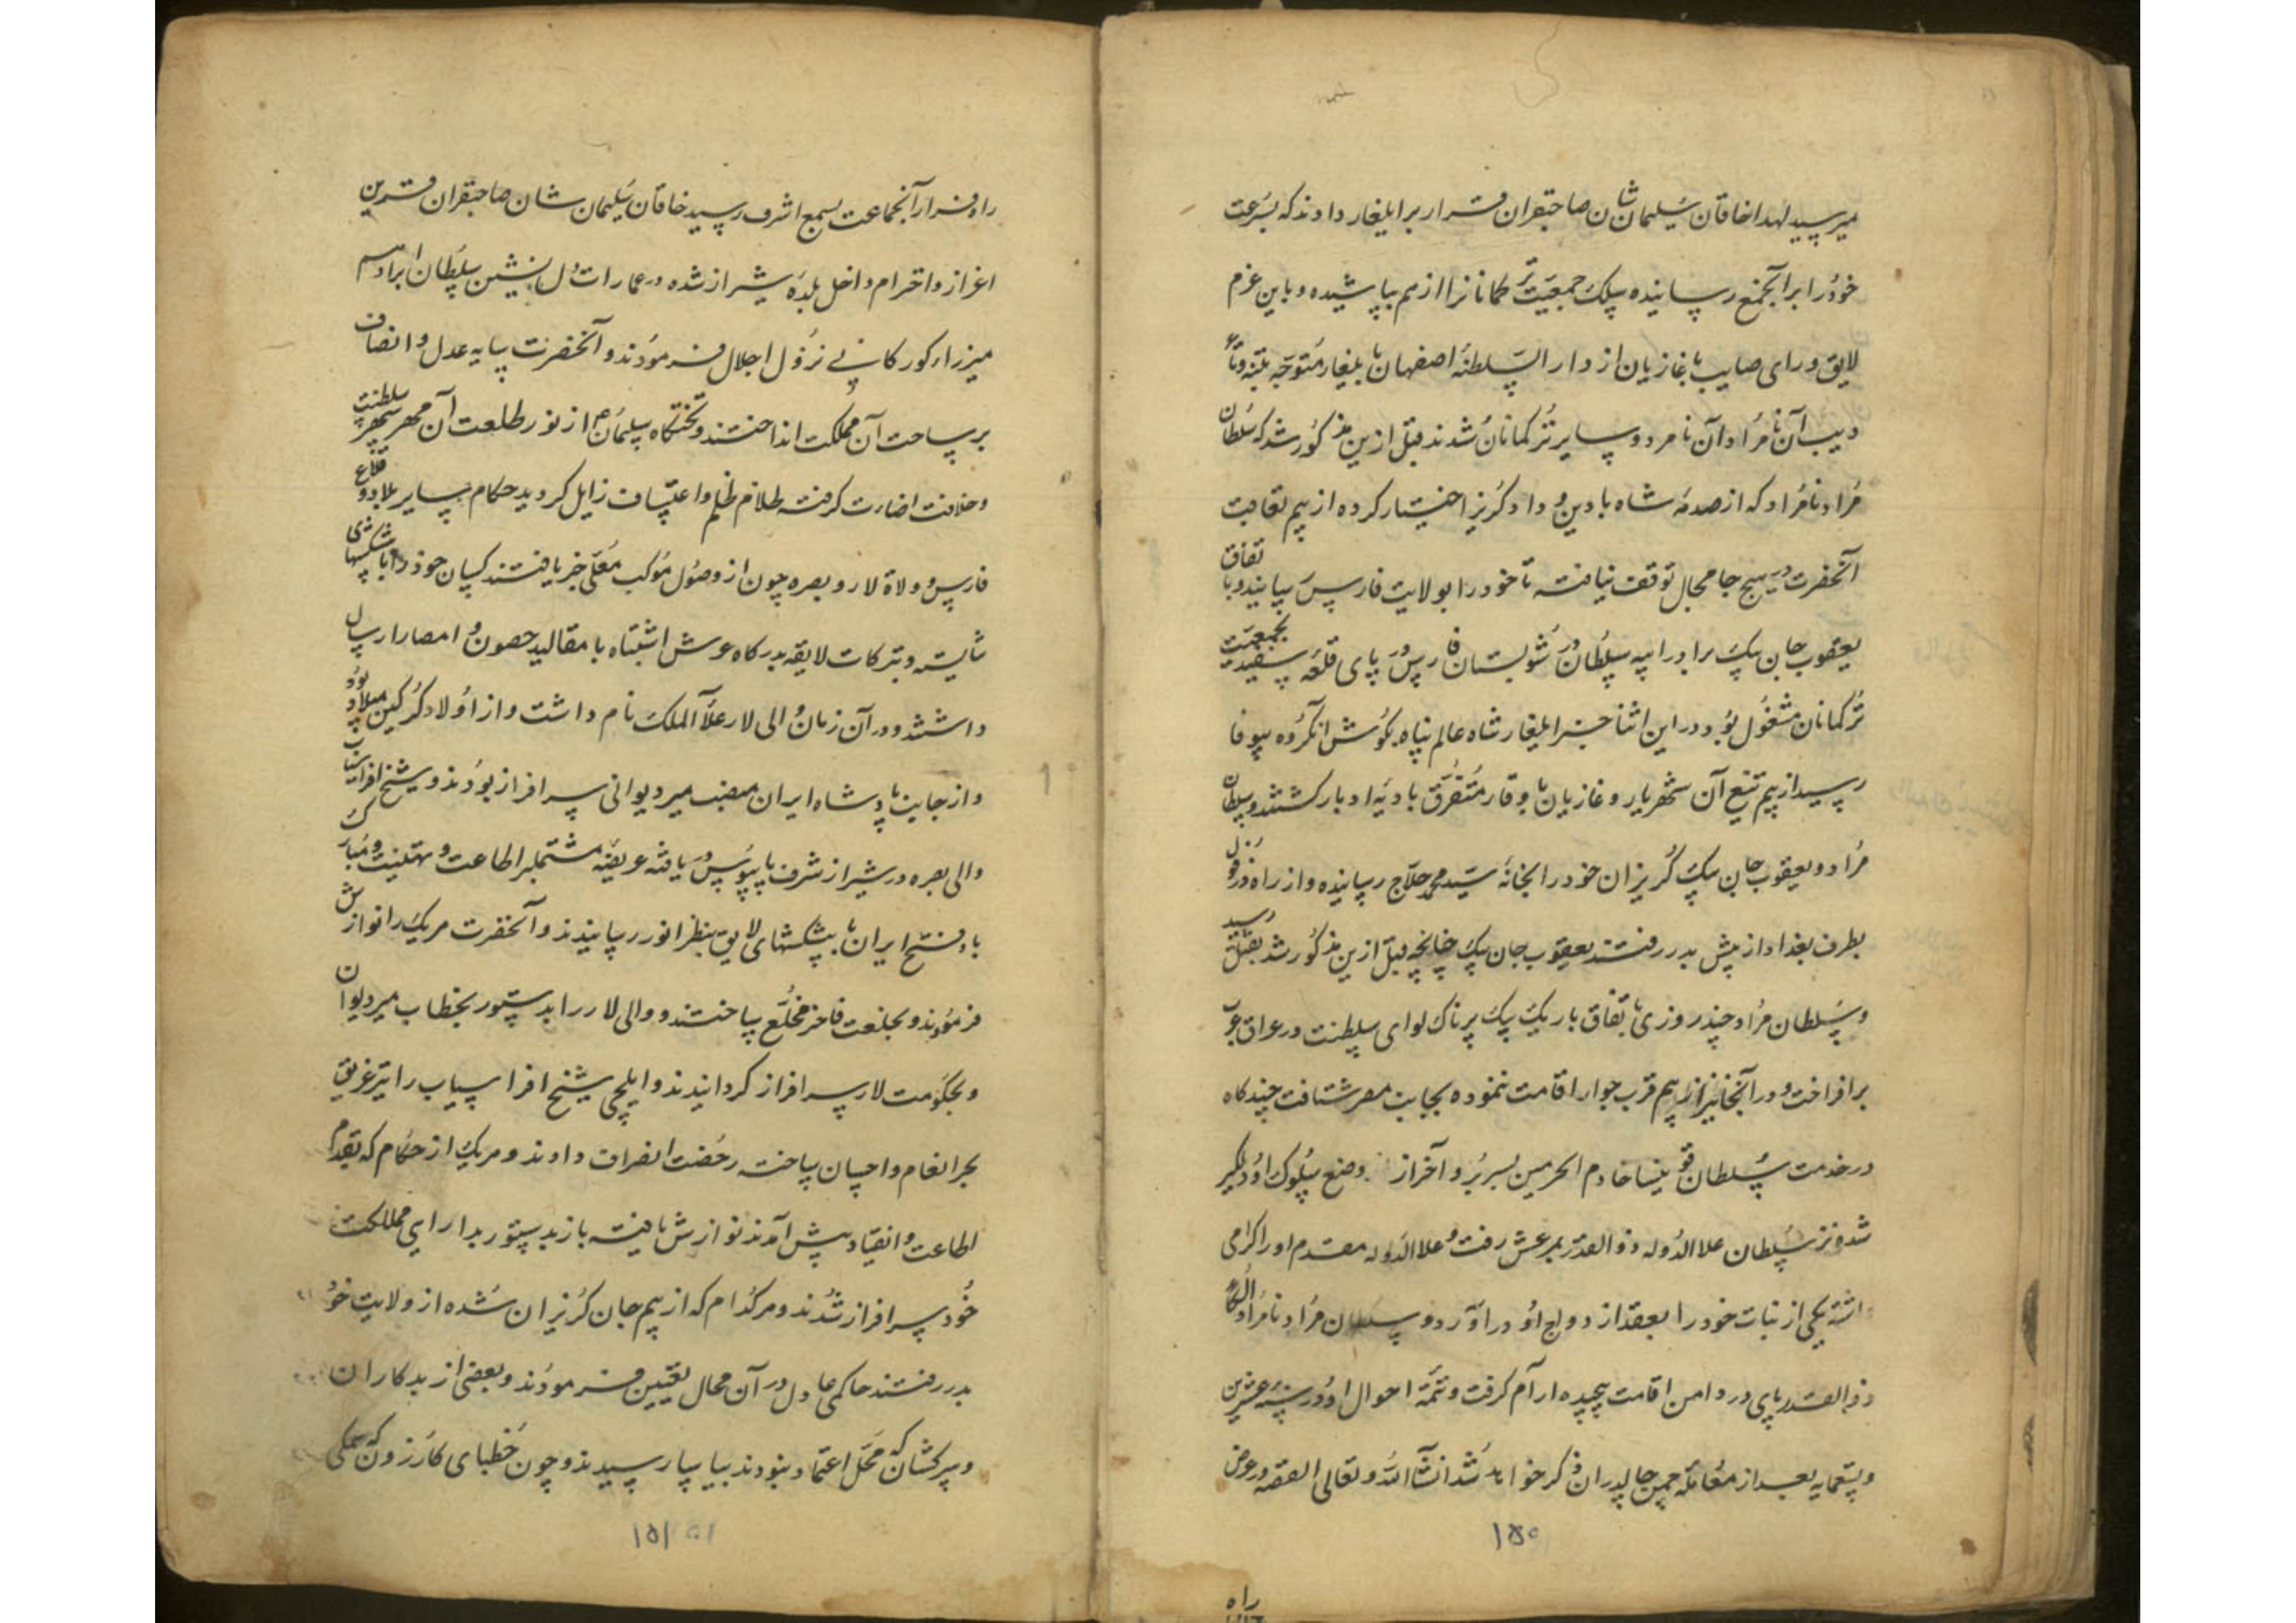 میرسید لهذا خاقان سلیمان شان صاحبقران قرار بر ایلغار دادند که بسرعت
خود را بر آنجمع رسانیده سلک جمعیت ترکمانانرا از هم بپاشیده و باین عزم
لایق و رای صایب با غازیان از دار السلطنه اصفهان بایلغار متوجه تنبیه و
آن نامراد آن نامرد و سایر ترکمانان شدند قبل ازین مذکور شد که سلطان
مراد نامراد که از صدمه شاه با دین و داد گریز اختیار کرده از بیم تعاقب
آنحضرت در هیچ جا مجال توقف نیافته تا خود را بولایت فارس رسانید و با تفاق
یعقوب جان بیک برادر ایبه سلطان در شولستان فارس در پای قلعه سفید بجمعیت
ترکمانان مشغول بود در این اثنا خبر ایلغار شاه عالم پناه بگوش آنگروه بیوفا
رسید از بیم تیغ آن شهریار و غازیان با وقار متفرق بادیه ادبار گشتند و سلطان
مراد و یعقوب جان بیک گریزان خود را بخانه سید محمد حلاج رسانیده و از راه دزفول
بطرف بغداد از پیش بدر رفتند یعقوب جان بیک چنانچه قبل ازین مذکور شد بقتل رسید
و سلطان مراد چند روزی باتفاق باریک بیک پرناک لوای سلطنت در عراق عرب
برافراخت و در آنجا نیز از بیم قرب جوار اقامت ننموده بجانب مصر شتافت چند گاه
در خدمت سلطان قینسا خادم الحرمین بسر برد و آخر از وضع سلوک او دلگیر
شده نزد سلطان علاالدوله ذوالقدر بمرعش رفت و علاالدوله مقدم او را گرامی
داشته یکی از بنات خود را بعقد ازدواج او در آورد و سلطان مراد نامراد در الکاء
ذوالقدر پای در دامن اقامت پیچیده آرام گرفت و تتمه احوال او در سنه عشرین
و تسعمایه بعد از معامله چمن چالدران ذکر خواهد شد انشاالله و تعالی القصه در عرض
۱۵۰
راه
راه فرار آنجماعت بسمع اشرف رسید خاقان سلیمان شان صاحبقران قرین
اعزاز و احترام داخل بلده شیراز شده در عمارات دل نشین سلطان ابراهیم
میرزاء کورکانی نزول اجلال فرمودند و آنحضرت سایه عدل و انصاف
بر ساحت آن مملکت انداختند و تختگاه سلیمان از نور طلعت آن مهر سپهر سلطنت
و خلافت اضاءت گرفته ظلام ظلم و اعتساف زایل گردید حکام سایر بلاد و قلاع
فارس و ولاة لار و بصره چون از وصول موکب معلی خبر یافتند کسان خود را با پیشکشهای
شایسته و تبرکات لایقه بدرگاه عرش اشتباه با مقالید حصون و امصار ارسال
داشتند و در آن زمان والی لار علاء الملک نام داشت و از اولاد گرگین میلاد بود
و از جانب پادشاه ایران بمنصب میر دیوانی سرافراز بودند و شیخ افراسیاب
والی بصره در شیراز شرف پابوس یافته عریضه مشتملبر اطاعت و تهنیت و مبارک
باد فتح ایران با پیشکشهای لایق بنظر انور رسانیدند و آنحضرت هریک را نوازش
فرمودند و بخلعت فاخر مخلع ساختند و والی لار را بدستور بخطاب میر دیوان
و بحکومت لار سرافراز گردانیدند و ایلچی شیخ افراسیاب را نیز غریق
بحر انعام و احسان ساخته رخصت انصراف دادند و هریک از حکام که بقدم
اطاعت و انقیاد پیش آمدند نوازش یافته باز بدستور بدارایی مملکت
خود سرافراز شدند و هرکدام که از بیم جان گریزان شده از ولایت خود
بدر رفتند حاکمی عادل در آن محال تعیین فرمودند و بعضی از بدکاران
و سرکشان که محل اعتماد نبودند بیاسا رسیدند و چون خطبای کازرون که همگی
۱۵۱